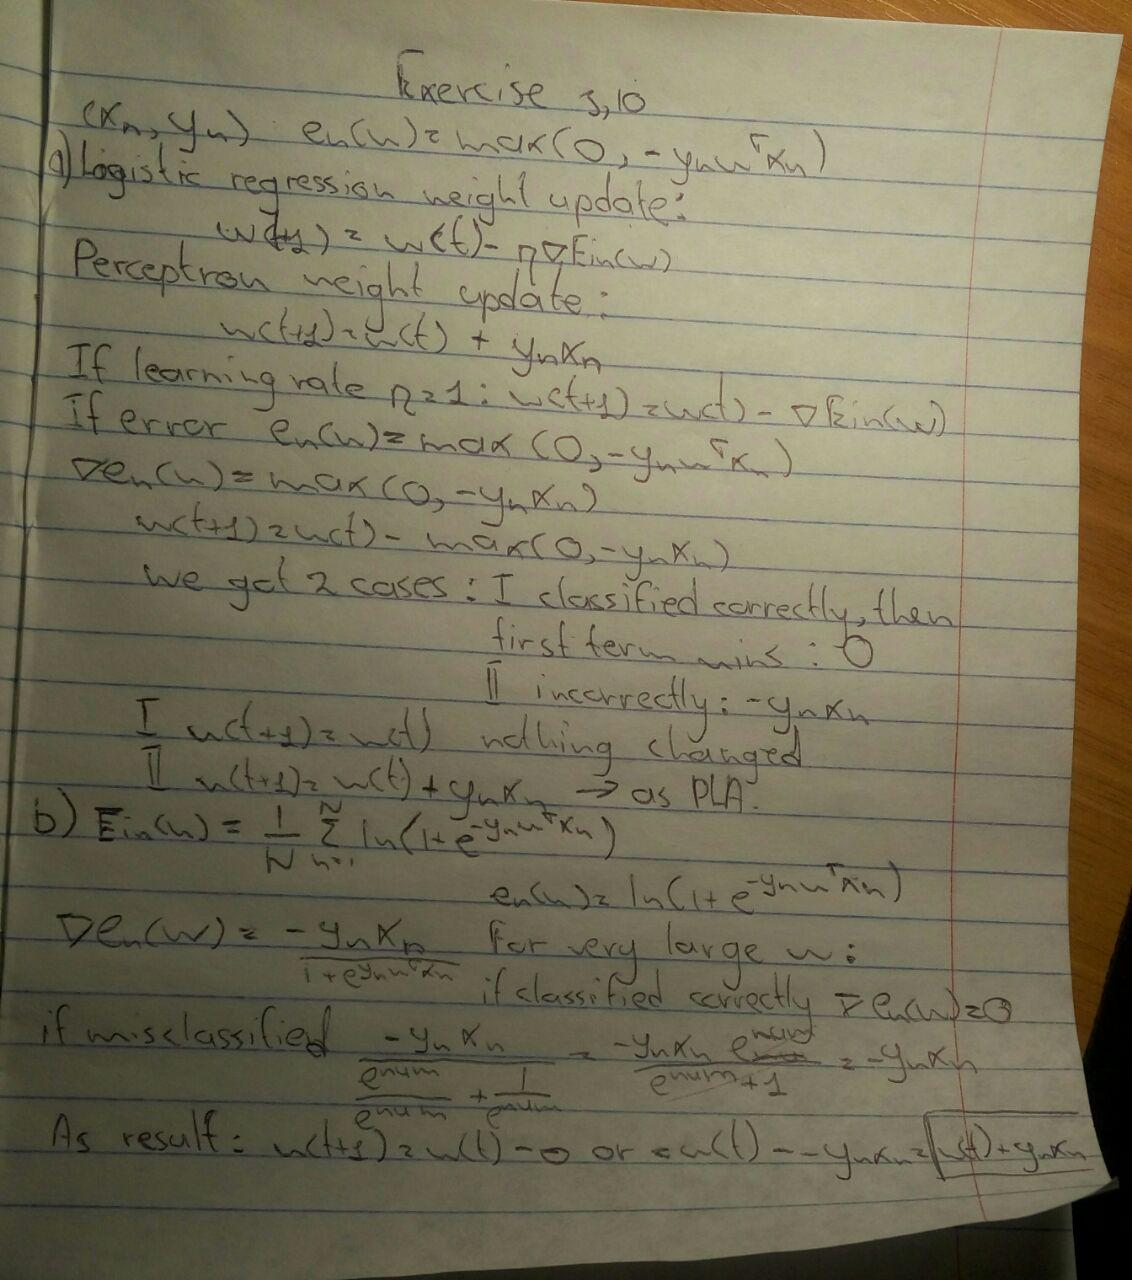 Exercise 3,10
(xn, yn) en(w)=max(0, -ynwᵀxn)
a) Logistic regression weight update:
w(t+1) = w(t) - η∇Ein(w)
Perceptron weight update:
w(t+1)=w(t) + ynxn
If learning rate η=1: w(t+1)=w(t) - ∇Ein(w)
If error en(w)=max(0,-ynwᵀxn)
∇en(w)=max(0,-ynxn)
w(t+1)=w(t)-max(0,-ynxn)
we got 2 cases: I classified correctly, then
first term wins: 0
II incorrectly: -ynxn
I w(t+1)=w(t) nothing changed
II w(t+1)=w(t)+ynxn → as PLA.
b) Ein(w) = 1/N Σ_{n=1}^{N} ln(1+e^{-ynwᵀxn})
en(w)= ln(1+e^{-ynwᵀxn})
∇en(w) = -ynxn / (1+e^{ynwᵀxn}) For very large w:
if classified correctly ∇en(w)=0
if misclassified -ynxn / (e^{num}/e^{num} + 1/e^{num}) = -ynxn e^{num} / (e^{num}+1) = -ynxn
As result: w(t+1)=w(t)-0 or =w(t)--ynxn=w(t)+ynxn